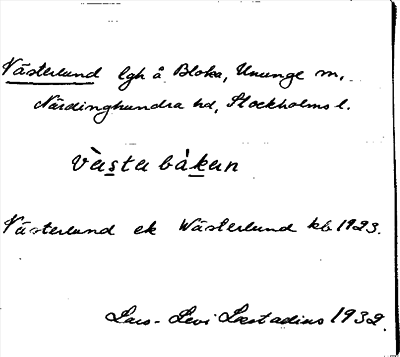 Västerlund lgh å Bloka, Ununge sn,
Närdinghundra hd, Stockholms l.
Västa båkan
Västerlund ek Wästerlund kb 1923.
Lars-Levi Læstadius 1932.